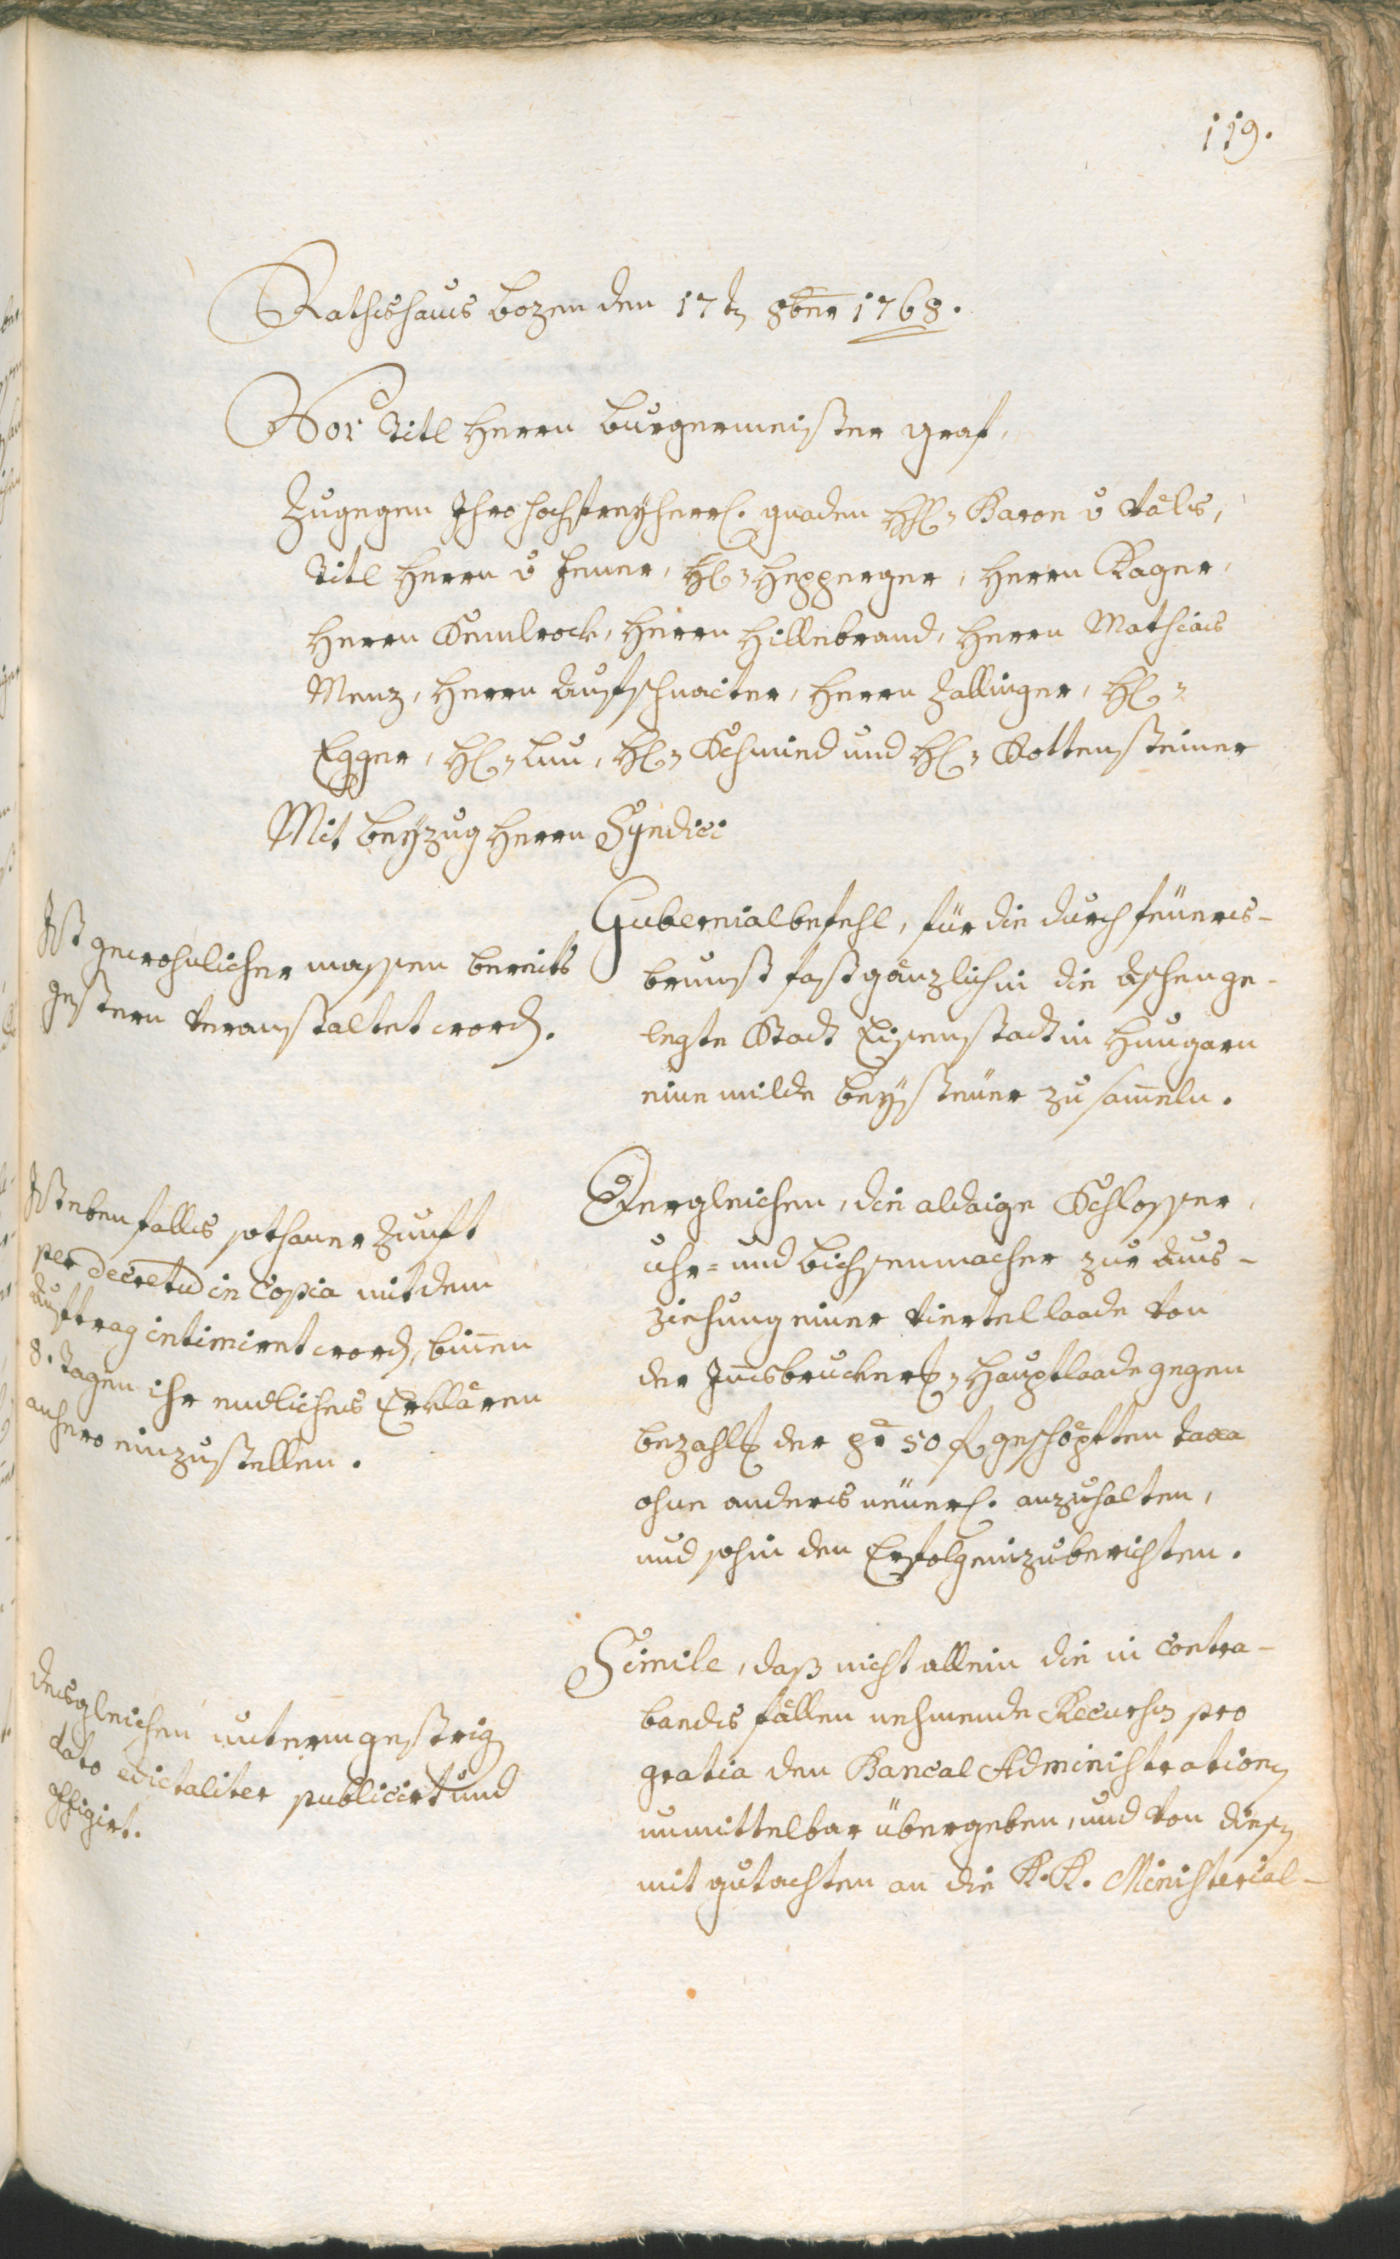 119.
Rathshaus bozen den 17tn 8ber 1768.
Vor Titl Herrn burgermeister graf,
Zugegen Ihro hochfreyherrl. gnaden Hl: Baron v Vols,
Titl Herrn v Jener, Hl: Hepperger, Herrn Rager,
Herrn Kemlrock, Herrn Hillebrand, Herrn Mathias
Menz, Herrn Aufschnaiter, Herrn Zallinger, Hl:
Egger, Hl: Lun, Hl: Schmied und Hl: Rottensteiner
Mit beyzug Herrn Syndici
Ist gewohnlicher massen bereits
gestern veranstaltet word.
Gubernialbefehl, für die durch feuers-
brunst fast gänzlich in die aschen ge-
legte Stadt Eisenstadt in Hungarn
eine milde beysteuer zu sam̄eln.
Ist ebenfalls sothaner Zunft
per decretū in Copia mit dem
auftrag intimirt word, bin̄en
8. tagen ihr endliches Erklären
anhero einzustellen.
Dergleichen, die aldaige Schlosser,
uhr- und bichsenmacher zur aus-
ziehung einer viertellaade von
der In̄sbrucker Hauptlaade gegen
bezahl der pr 50 f geschöpften taxa
ohne anders neuerl. anzuhalten,
und sohin den Erfolg einzuberichten.
desgleichen unterm gestrig
dato edictaliter publicirt und
affigirt.
Simile, daß nicht allein die in contra-
bands fällen nehmende Recursen pro
gratia den Bancal Administrationen
unmittelbar übergeben, und von diesen
mit gutachten an die K. K. Ministerial-